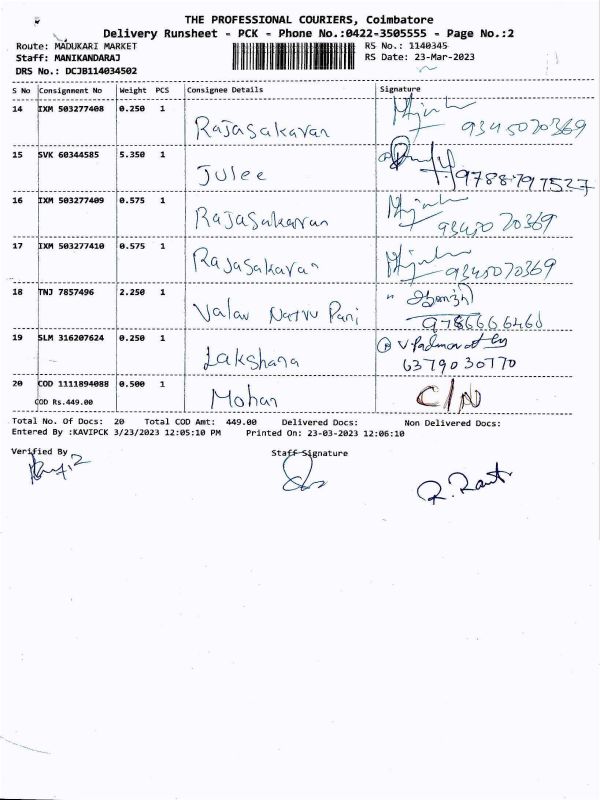 THE PROFESSIONAL COURIERS, Coimbatore
Delivery Runsheet - PCK - Phone No.:0422-3505555 - Page No.:2
Route: MADUKARI MARKET RS No.: 1140345
Staff: MANIKANDARAJ RS Date: 23-Mar-2023
DRS No.: DCJB114034502
S No Consignment No Weight PCS Consignee Details Signature
14 IXM 503277408 0.250 1 Rajasakaran 9345070369
15 SVK 60344585 5.350 1 Julee 9788797527
16 IXM 503277409 0.575 1 Rajasakaran 9345070369
17 IXM 503277410 0.575 1 Rajasakaran 9345070369
18 TNJ 7857496 2.250 1 Valav Nattu Pani
9786666460
19 SLM 316207624 0.250 1 Lakshana
6379030770
20 COD 1111894088 0.500 1 Mohan C/N
COD Rs.449.00
Total No. Of Docs: 20 Total COD Amt: 449.00 Delivered Docs: Non Delivered Docs:
Entered By :KAVIPCK 3/23/2023 12:05:10 PM Printed On: 23-03-2023 12:06:10
Verified By Staff Signature